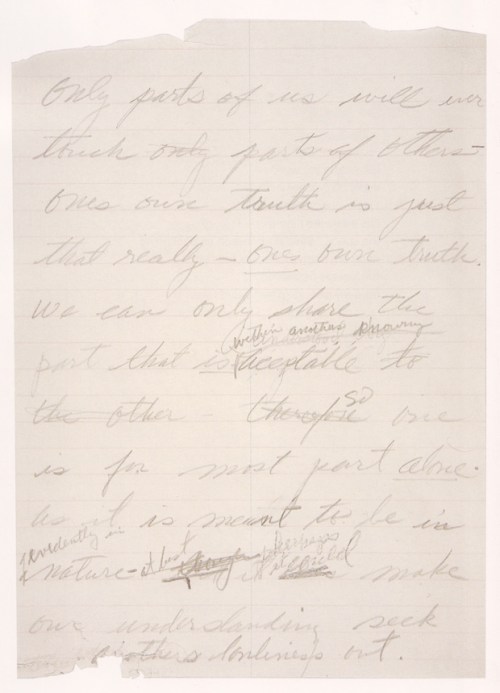 Only parts of us will ever
touch only parts of others —
ones own truth is just
that really — ones own truth.
We can only share the
within anothers knowing
part that is acceptable to
the other — therefore so one
is for most part alone.
As it is meant to be in
evidently in
nature — at best perhaps
it could make
our understanding seek
another's lonliness out.